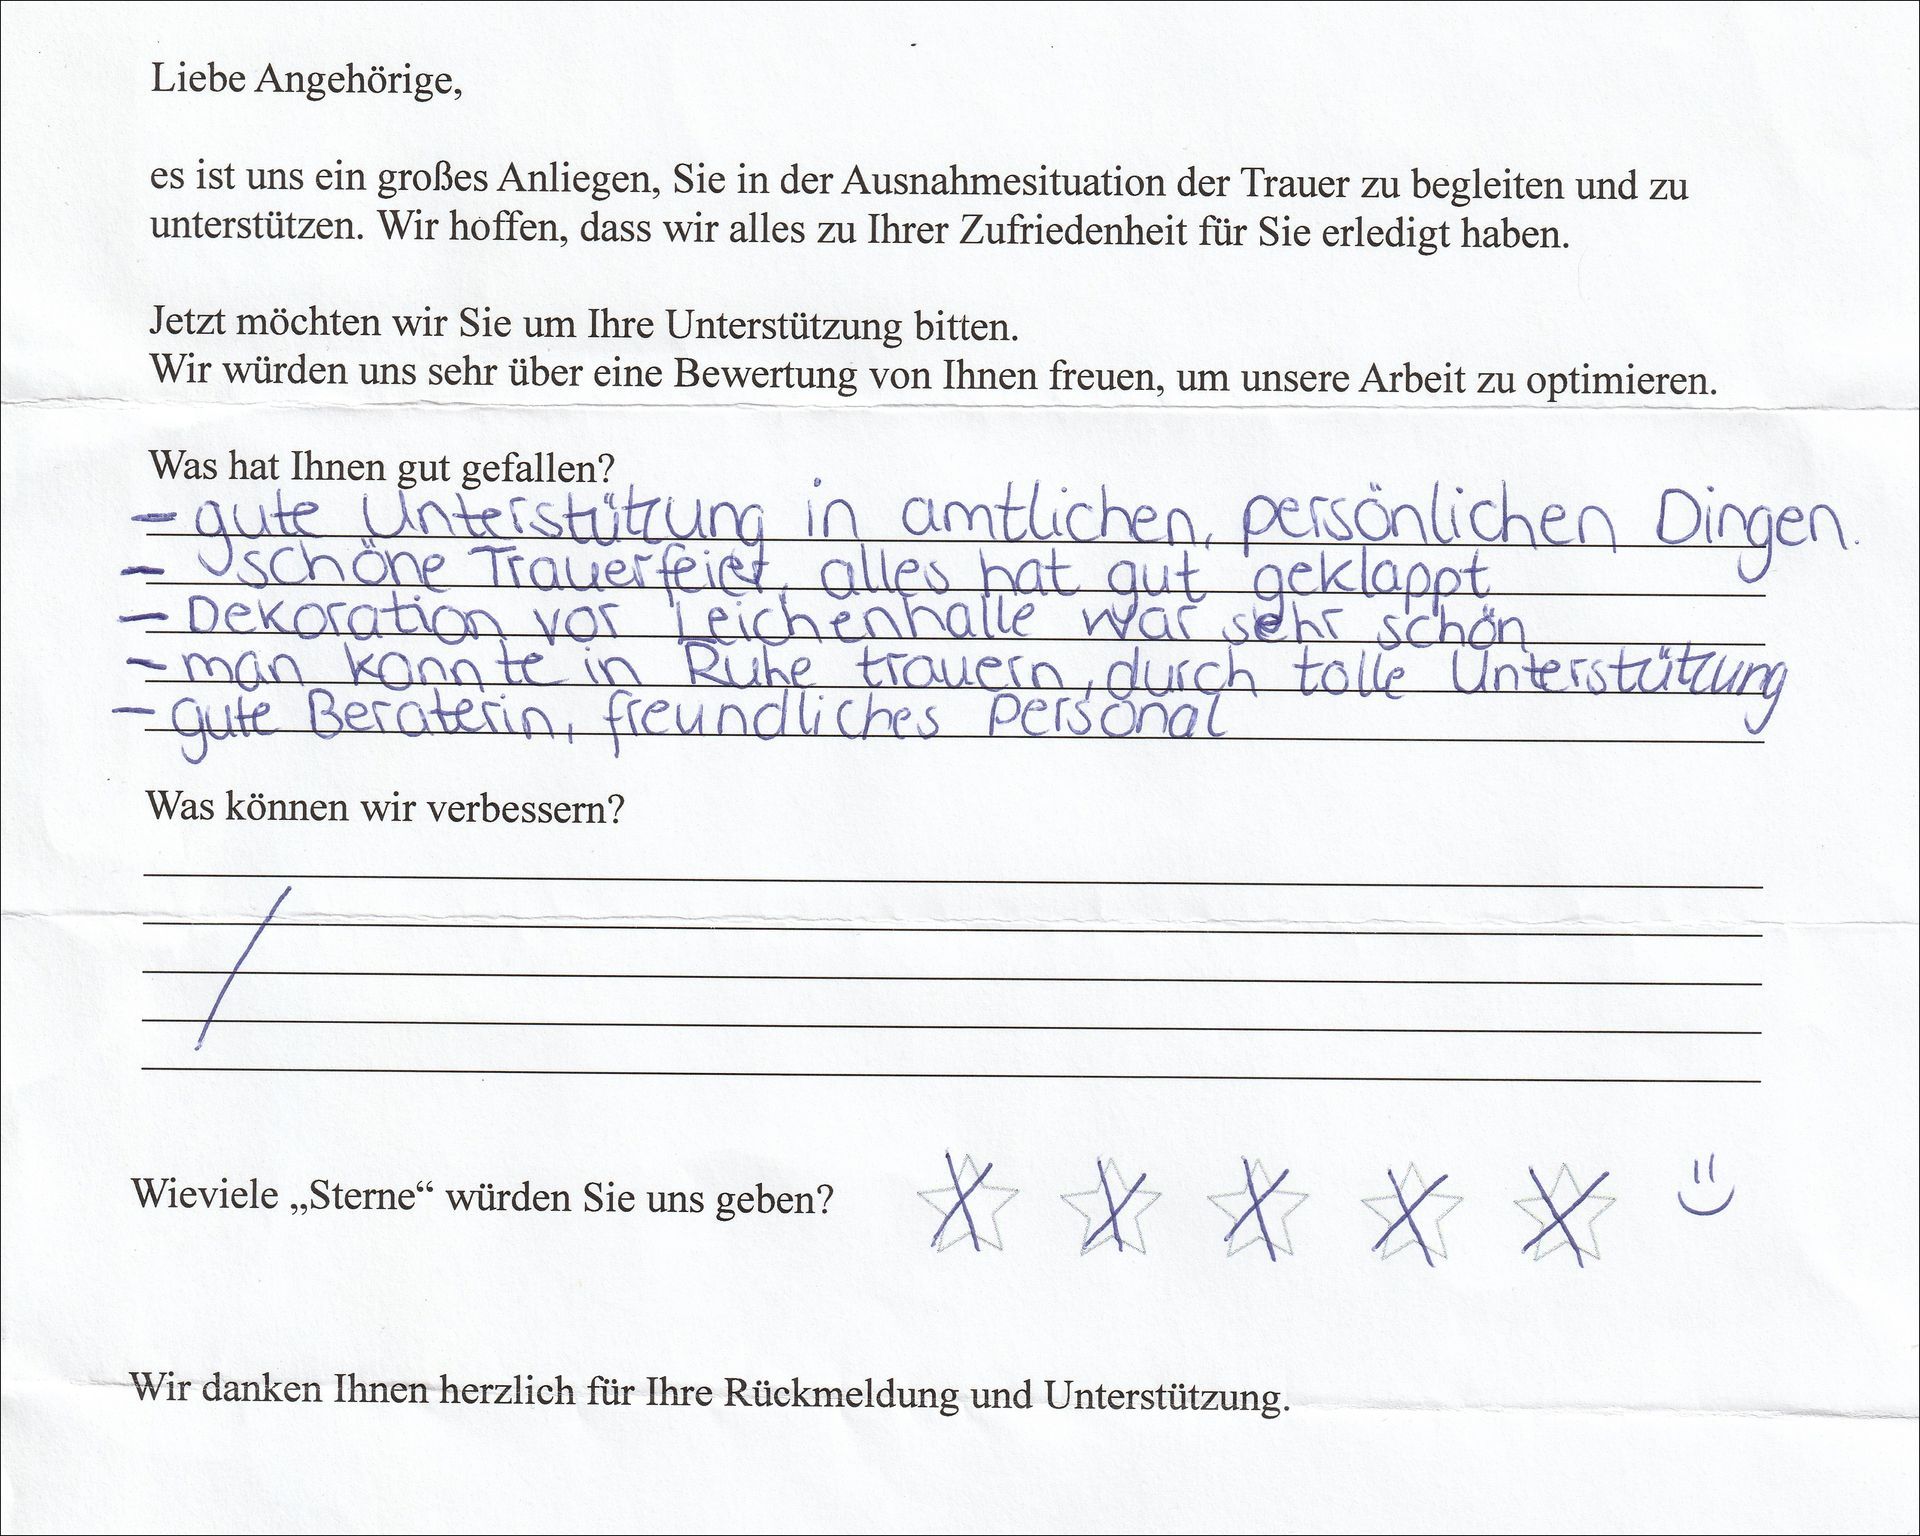 Liebe Angehörige,
es ist uns ein großes Anliegen, Sie in der Ausnahmesituation der Trauer zu begleiten und zu
unterstützen. Wir hoffen, dass wir alles zu Ihrer Zufriedenheit für Sie erledigt haben.
Jetzt möchten wir Sie um Ihre Unterstützung bitten.
Wir würden uns sehr über eine Bewertung von Ihnen freuen, um unsere Arbeit zu optimieren.
Was hat Ihnen gut gefallen?
- gute Unterstützung in amtlichen, persönlichen Dingen.
- schöne Trauerfeier, alles hat gut geklappt
- Dekoration vor Leichenhalle war sehr schön
- man konnte in Ruhe trauern, durch tolle Unterstützung
- gute Beraterin, freundliches Personal
Was können wir verbessern?
/
Wieviele „Sterne“ würden Sie uns geben?
Wir danken Ihnen herzlich für Ihre Rückmeldung und Unterstützung.